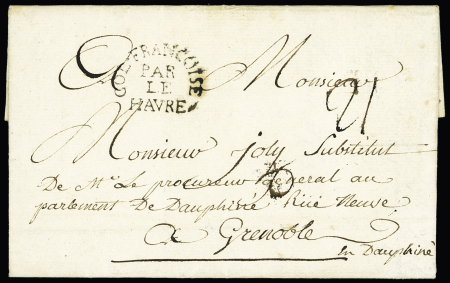 COL. FRANCOISE
PAR
LE
HAVRE
A Monsieur
21
Monsieur joly Substitut
De Mr. Le procureur general au
parlement De Dauphiné Rüe Neuve.
A Grenoble
en Dauphiné